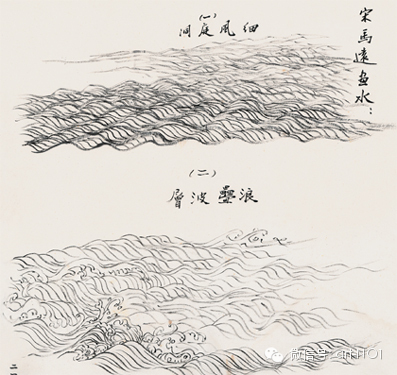 宋馬遠畫水：
(一)
洞庭風細
(二)
層波疊浪